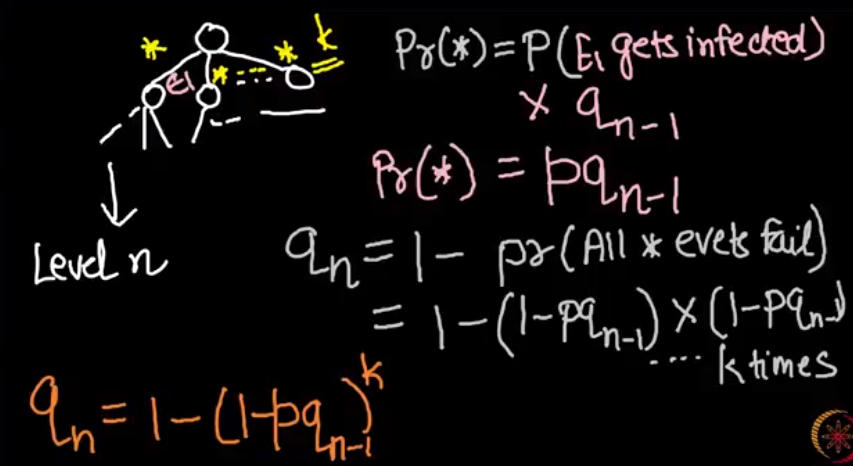 * * * k
E1
Level n
Pr(*) = P(E1 gets infected)
× qn-1
Pr(*) = pqn-1
qn = 1 - pr(All * evets fail)
= 1 - (1-pqn-1) × (1-pqn-1)
.... k times
qn = 1 - (1-pqn-1)^k